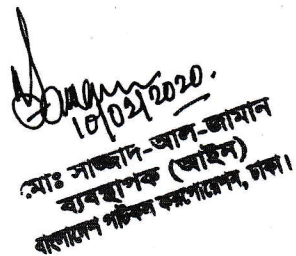 10/02/2020.
মোঃ সাজ্জাদ-আল-জামান
ব্যবস্থাপক (আইন)
বাংলাদেশ পাটকল করপোরেশন, ঢাকা।